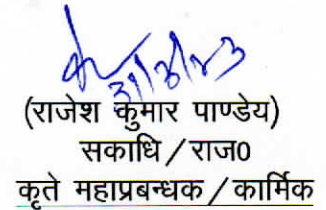 31/3/23
(राजेश कुमार पाण्डेय)
सकाधि/राज0
कृते महाप्रबन्धक/कार्मिक